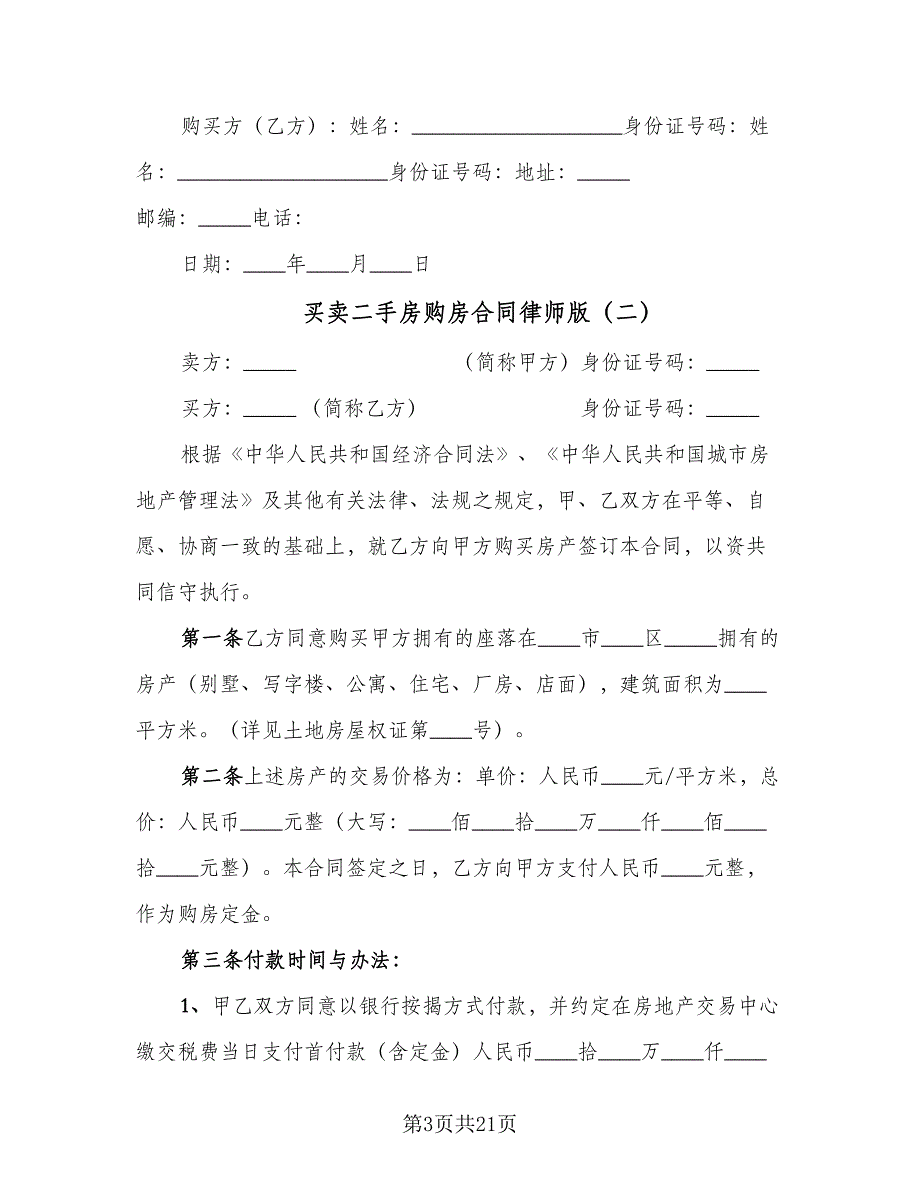 购买方（乙方）：姓名：____________________身份证号码：姓
名：____________________身份证号码：地址：_____
邮编：_____电话：
日期：____年____月____日
买卖二手房购房合同律师版（二）
卖方：_____ （简称甲方）身份证号码：_____
买方：_____（简称乙方） 身份证号码：_____
根据《中华人民共和国经济合同法》、《中华人民共和国城市房
地产管理法》及其他有关法律、法规之规定，甲、乙双方在平等、自
愿、协商一致的基础上，就乙方向甲方购买房产签订本合同，以资共
同信守执行。
第一条乙方同意购买甲方拥有的座落在____市____区_____拥有的
房产（别墅、写字楼、公寓、住宅、厂房、店面），建筑面积为____
平方米。（详见土地房屋权证第____号）。
第二条上述房产的交易价格为：单价：人民币____元/平方米，总
价：人民币____元整（大写：____佰____拾____万____仟____佰____
拾____元整）。本合同签定之日，乙方向甲方支付人民币____元整，
作为购房定金。
第三条付款时间与办法：
1、甲乙双方同意以银行按揭方式付款，并约定在房地产交易中心
缴交税费当日支付首付款（含定金）人民币____拾____万____仟____
第3页共21页